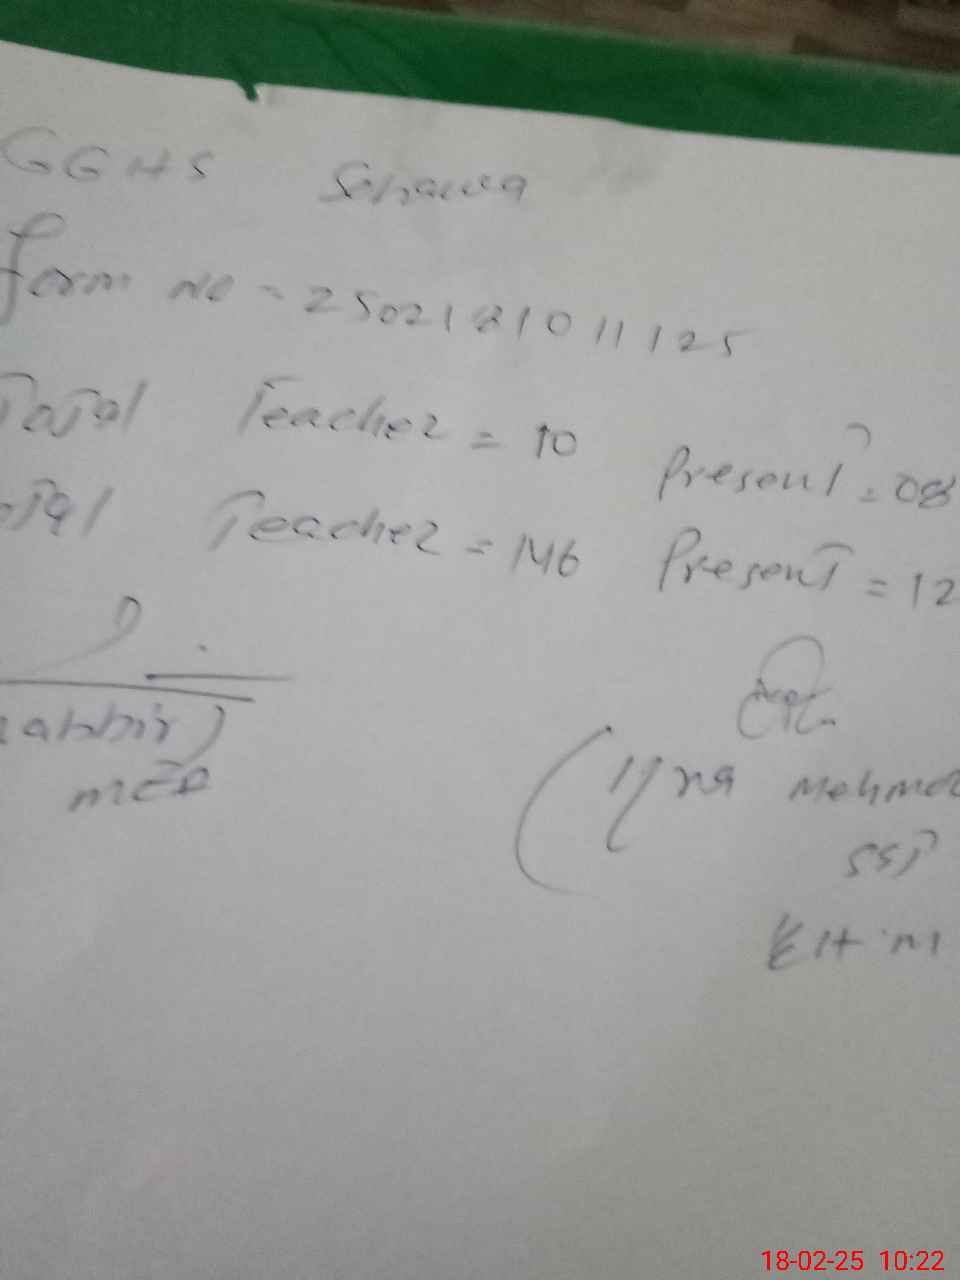 GGHS Sehawa
form no - 250218101125
Total Teacher = 10 Present = 08
otal Teacher = 146 Present = 12
abbir)
MEA
( Mehmo
SST
18-02-25 10:22